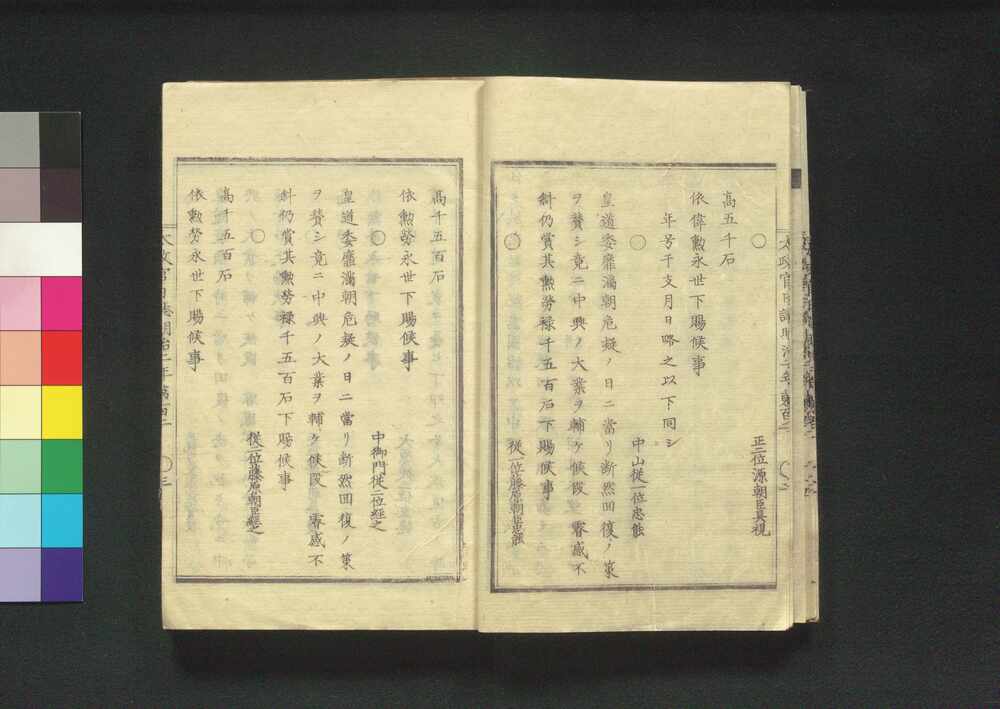 正二位源朝臣具視
〇
高五千石
依偉勲永世下賜候事
年号干支月日略之以下同シ
中山従一位忠能
〇
皇道委靡満朝危疑ノ日ニ當リ断然回復ノ策
ヲ賛シ竟ニ中興ノ大業ヲ輔ケ候段 睿感不
斜仍賞其勲労禄千五百石下賜候事
従一位藤原朝臣忠能
〇
高千五百石
依勲労永世下賜候事
中御門従二位経之
〇
皇道委靡満朝危疑ノ日ニ當リ断然回復ノ策
ヲ賛シ竟ニ中興ノ大業ヲ輔ケ候段 睿感不
斜仍賞其勲労禄千五百石下賜候事
従二位藤原朝臣経之
〇
高千五百石
依勲労永世下賜候事
太政官日誌明治二年 第百二